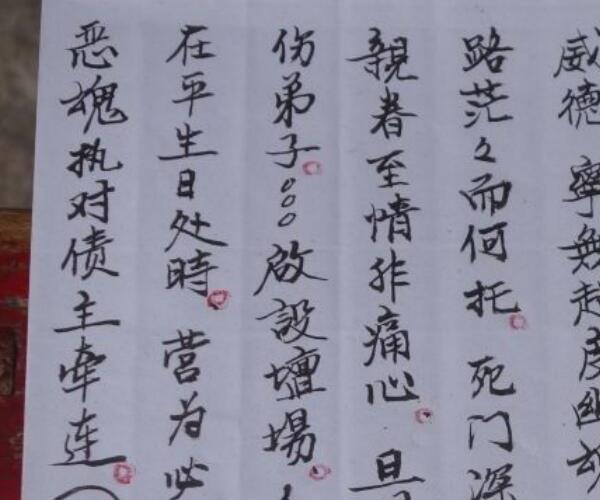 威德 寧無超度幽魂
路茫々而何托 死门深
親眷至情非痛心 旦
伤弟子○○○啟設壇場
在平生日处時 营为必
恶塊执对债主牵连